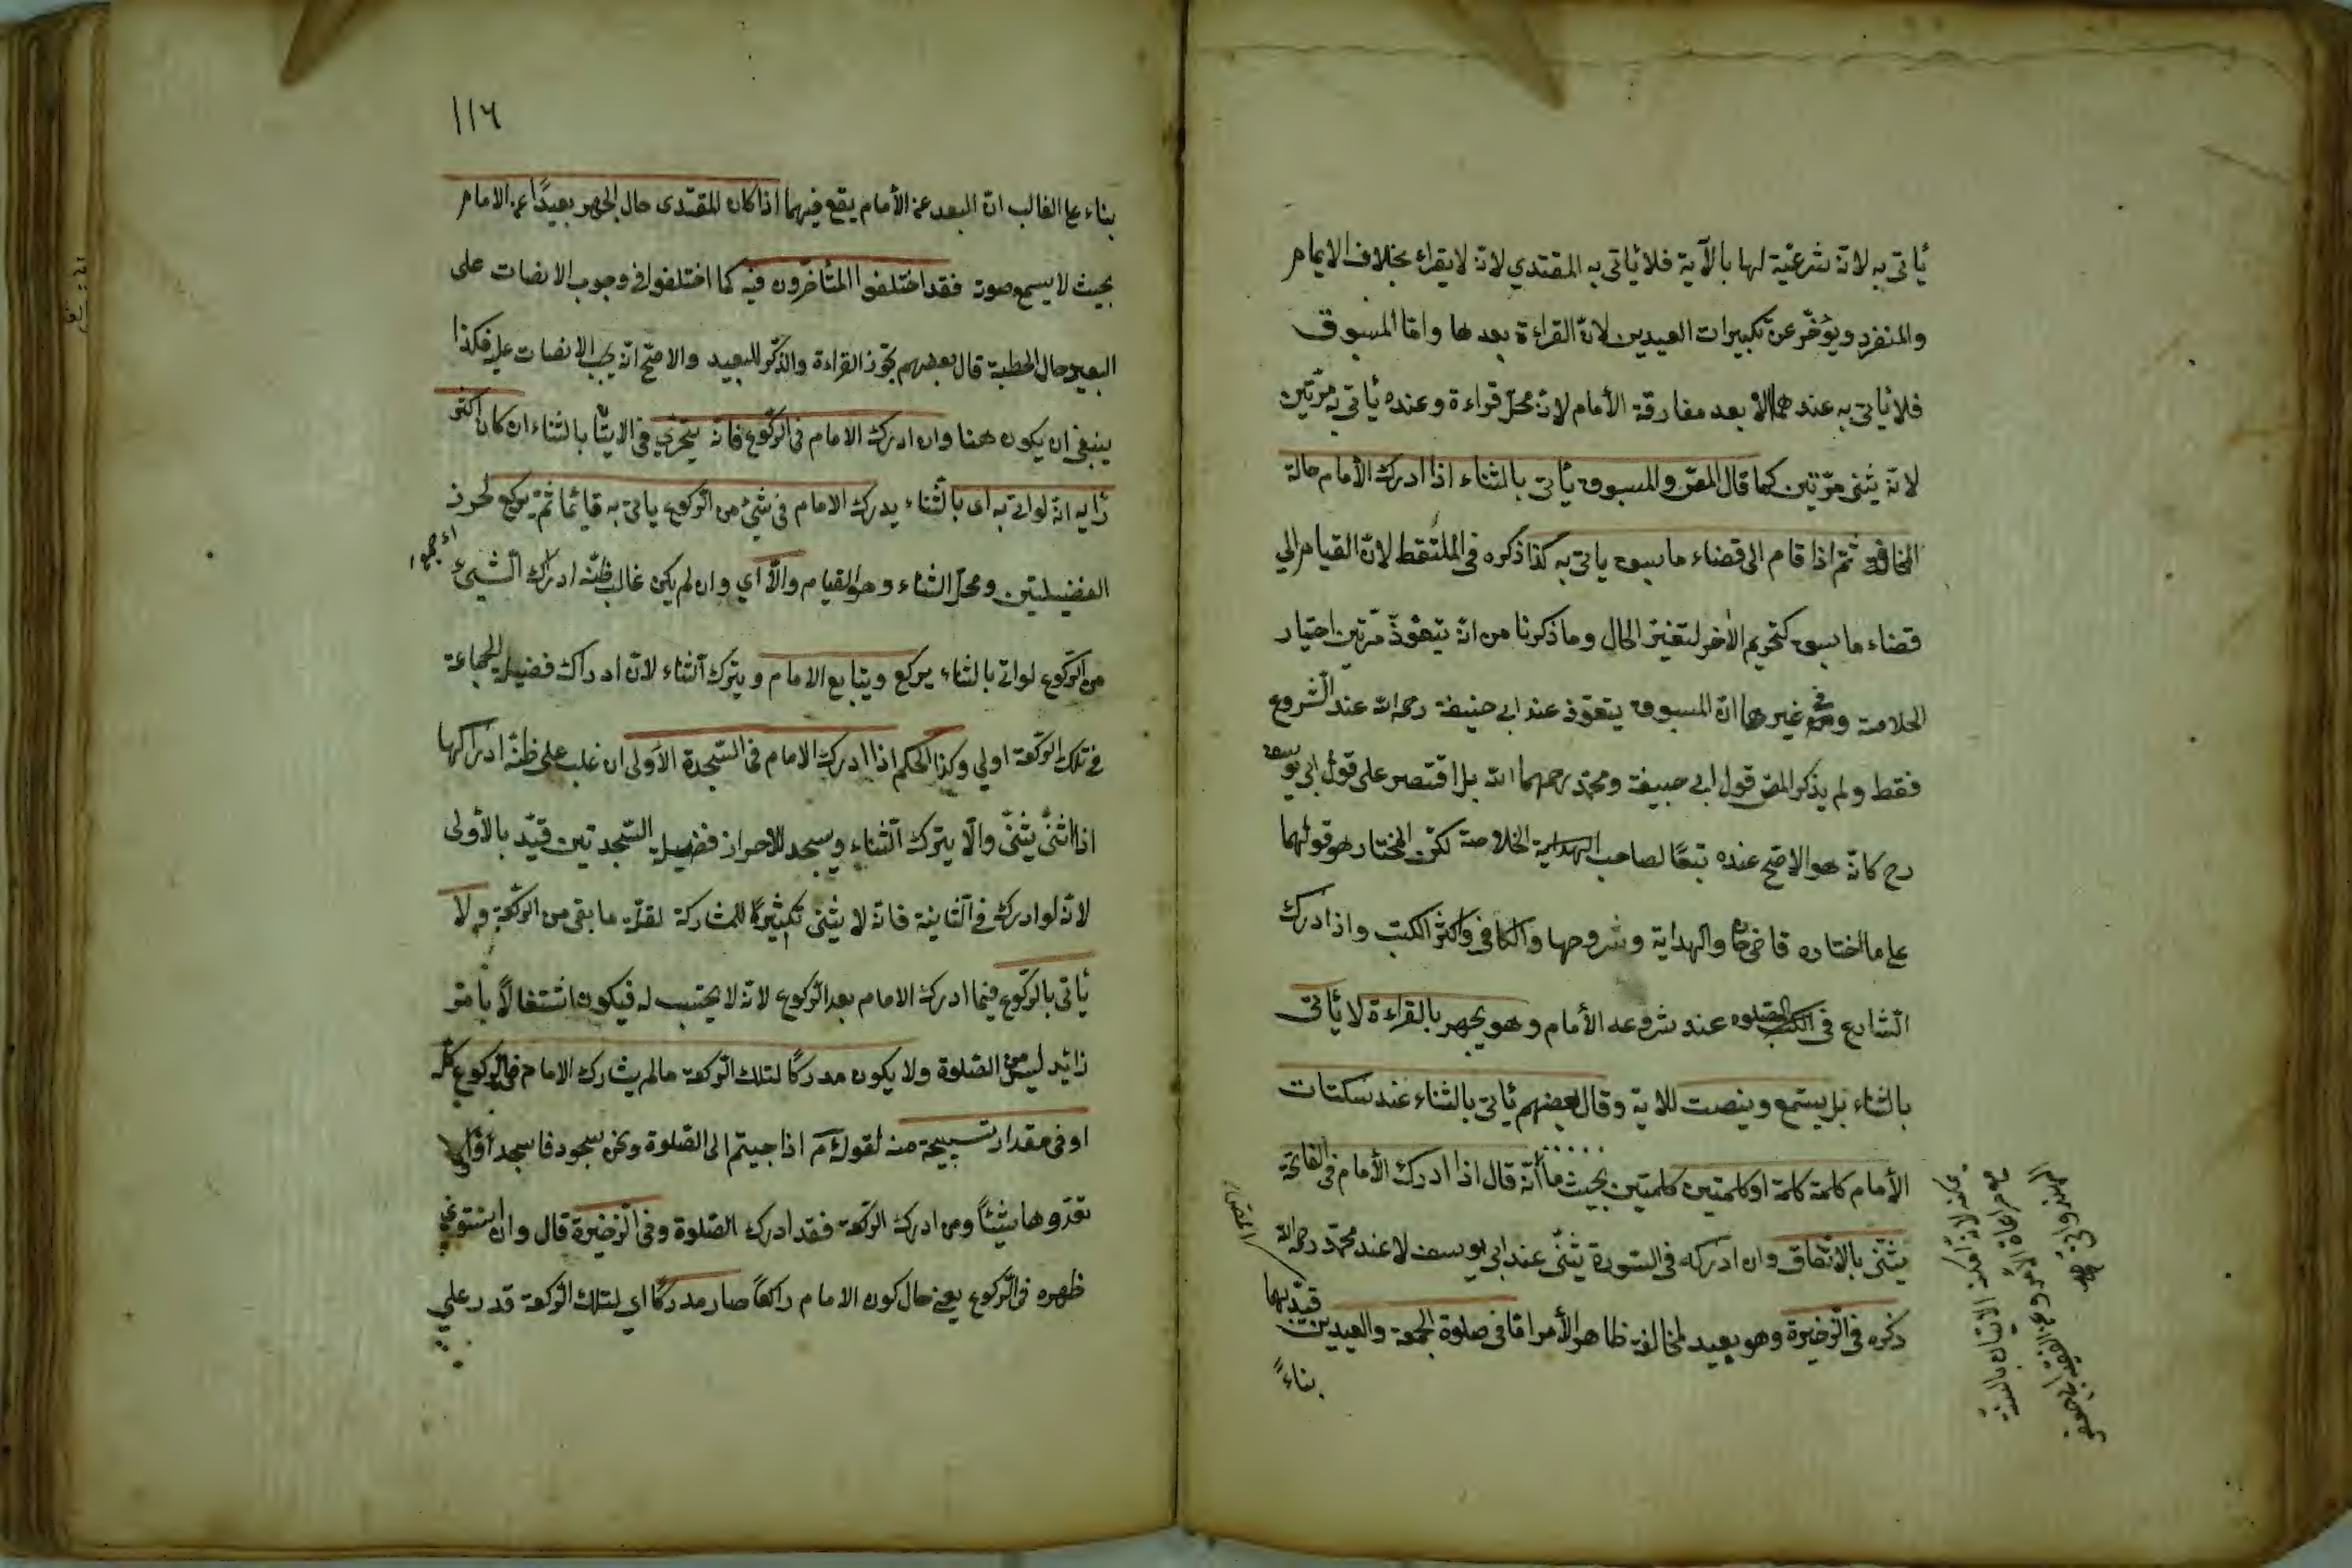 يأتى به لانه شرعية لها بالآية فلا يأتى به المقتدي لانه لا يقراء بخلاف الايمام
والمنفرد ويؤخر عن تكبيرات العيدين لان القراءة بعدها واما المسبوق
فلا يأتى به عندهما الا بعد مفارقة الأمام لانه محل قراءة وعنده يأتى به مرتين
لانه يثنى مرتين كما قال المص والمسبوق يأتى بالثناء اذا ادرك الأمام حالة
المخافة ثم اذا قام الى قضاء ما سبق ياتى به كذا ذكره فى الملتقط لان القيام الي
قضاء ما سبق كتحريم الأخر لتغير الحال وما ذكرنا من انه يتعوذ مرتين اختيار
الخلاصة وفى غيرها ان المسبوق يتعوذ عند ابى حنيفة رحمه الله عند الشروع
فقط ولم يذكر المص قول ابى حنيفة ومحمد رحمهما الله بل اقتصر على قول ابى يوسف
رح كانه هو الاصح عنده تبعًا لصاحب الخلاصة لكن المختار هو قولهما
على ما اختاره قاضى خان والهداية وشروحها والكافى واكثر الكتب واذا ادرك
الشارع فى الصلوه عند شروعه الأمام وهو يجهر بالقراءة لا يأتى
بالثناء بل يستمع وينصت للاية وقال بعضهم يأتى بالثناء عند سكتات
الأمام كلمة كلمة او كلمتين كلمتين بحيث ما انه قال اذا ادرك الأمام فى الفاتحة
يثنى بالاتفاق وان ادركه فى السورة يثنى عند ابى يوسف لا عند محمد رحمه الله
ذكره فى الذخيرة وهو بعيد لمخالفة ظاهر الأمر اما فى صلوة الجمعة والعيدين
قيد بهما
المص
بناءً
الاتيان بالسنة
مع مراعاة الأمر وعن الفقيه ابى جعفر
الهندوانى
١١٦
بناء على الغالب ان البعد عن الأمام يقع فيهما اذا كان المقتدى حال الجهر بعيدًا عن الامام
بحيث لا يسمع صوته فقد اختلفوا المتأخرون فيه كما اختلفوا فى وجوب الانصات على
البعيد حال الخطبة قال بعضهم يجوز القراءة والذكر للبعيد والاصح انه يجب الانصات عليه فكذا
ينبغى ان يكون ههنا وان ادرك الامام فى الركوع فانه يتحرى فى الاتيان بالثناء ان كان اكثر
رأيه انه لو اتى به اى بالثناء يدرك الامام فى شئ من الركوع ياتى به قائما ثم يركع لحرز
الفضيلتين ومحل الثناء وهو القيام والا اي وان لم يكن غالب ظنه ادراك الشيئ
من الركوع لو اتى بالثناء يركع ويتابع الامام ويترك الثناء لان ادراك فضيلة الجماعة
فى تلك الركعة اولي وكذا الحكم اذا ادرك الامام فى السجدة الاولى ان غلب على ظنه ادراكها
اذا اثنى يثنى والا يترك الثناء ويسجد للاحراز فضيلة السجدتين قيد بالأولى
لانه لو ادرك فى الثانية فانه لا يثنى تكثيرًا للمشاركة لقلة ما بقى من الركعة ولا
يأتى بالركوع فيما ادرك الامام بعد الركوع لانه لا يحتسب له فيكون اشتغالاً بأمر
زائد ليس من الصلوة ولا يكون مدركًا لتلك الركعة مالم يشارك الامام فى الركوع كله
او فى مقدار تسبيحة منه لقوله عم اذا جيتم الى الصلوة ونحن سجود فاسجدوا ولا
تعدوها شيئًا ومن ادرك الركعة فقد ادرك الصلوة وفى الذخيرة قال وان استوى
ظهره فى الركوع يعنى حال كون الامام راكعًا صار مدركًا اي لتلك الركعة قدر علي